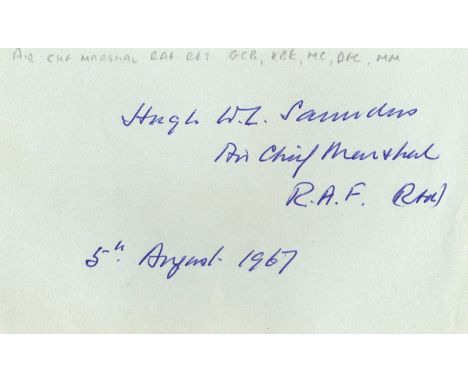 AIR CHF MARSHAL RAF RET GCB, KBE, MC, DFC, MM
Hugh W.L. Saunders
Air Chief Marshal
R.A.F. (Rtd)
5th. August 1967